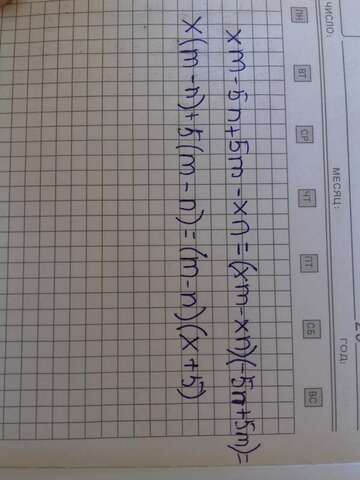 ЧИСЛО: МЕСЯЦ: 20 ГОД:
ПН ВТ СР ЧТ ПТ СБ ВС
xm-5n+5m-xn=(xm-xn)(-5n+5m)=
x(m-n)+5(m-n)=(m-n)(x+5)